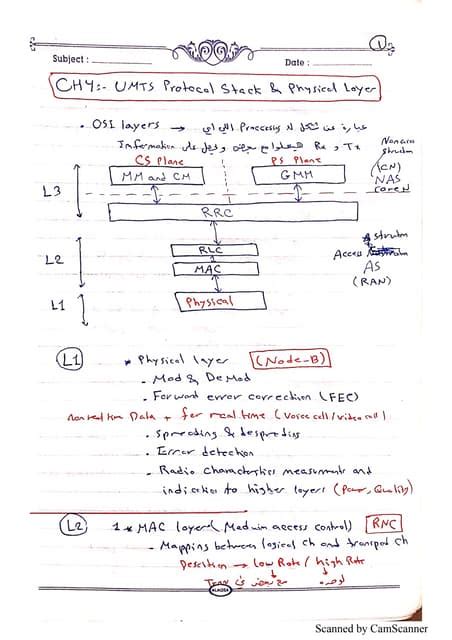 1
Subject : Date :
CH4:- UMTS Protocol Stack & Physical Layer
. OSI layers → عبارة عن شكل ل Processes اللي اي
Information هيعملوا مع بعض وقبل على Rx و Tx
CS Plane PS Plane
MM and CM GMM
(CN)
NAS
L3
RRC
L2 RLC
MAC
Access
AS
(RAN)
L1 Physical
L1 * Physical layer (Node-B)
- Mod & DeMod
- Forward error correction (FEC)
Data + for real time (Voice call / Video call)
- Spreading & despreading
- Error detection
- Radio characteristics measurements and
indication to higher layers (Power, Quality)
L2 1 * MAC layer (Medium access control) RNC
- Mapping between logical ch and transport ch
Desition → low Rate / high Rate
مع بعض في لوحده
Scanned by CamScanner